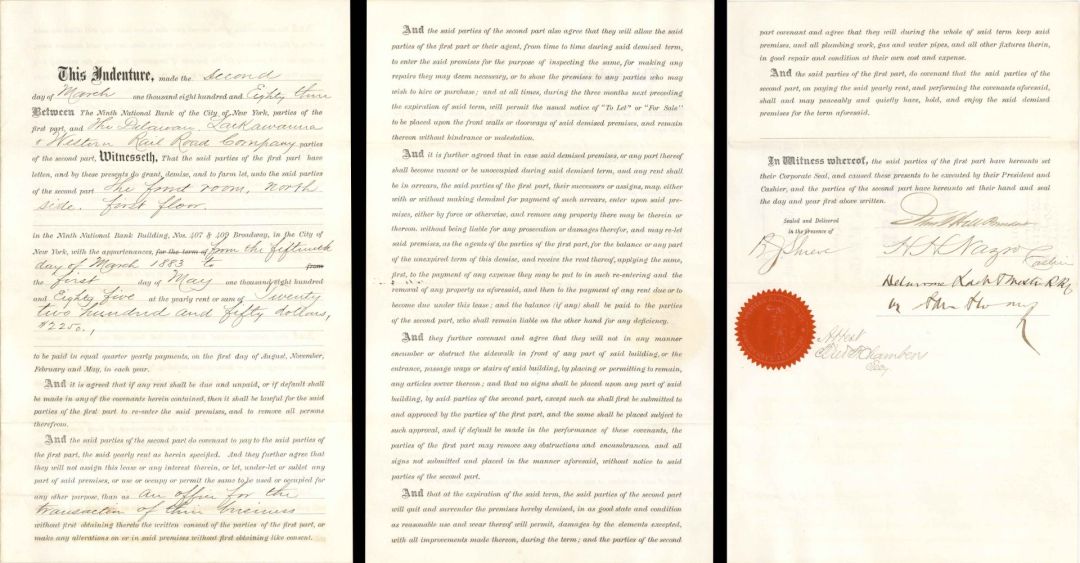 This Indenture, made the Second
day of March one thousand eight hundred and Eighty three
Between The Ninth National Bank of the City of New York, parties of the
first part, and The Delaware, Lackawanna
& Western Rail Road Company parties
of the second part, Witnesseth, That the said parties of the first part have
letten, and by these presents do grant, demise, and to farm let, unto the said parties
of the second part The front room, North
side, first floor.
in the Ninth National Bank Building, Nos. 407 & 409 Broadway, in the City of
New York, with the appurtenances, for the term of from the fifteenth
day of March 1883 to from
the first day of May one thousand eight hundred
and Eighty five at the yearly rent or sum of Twenty
two hundred and fifty dollars,
$2250.,
to be paid in equal quarter yearly payments, on the first day of August, November,
February and May, in each year.
And it is agreed that if any rent shall be due and unpaid, or if default shall
be made in any of the covenants herein contained, then it shall be lawful for the said
parties of the first part to re-enter the said premises, and to remove all persons
therefrom.
And the said parties of the second part do covenant to pay to the said parties of
the first part, the said yearly rent as herein specified. And they further agree that
they will not assign this lease or any interest therein, or let, under-let or sublet any
part of said premises, or use or occupy or permit the same to be used or occupied for
any other purpose, than as an office for the
transaction of their business
without first obtaining thereto the written consent of the parties of the first part, or
make any alterations on or in said premises without first obtaining like consent.
And the said parties of the second part also agree that they will allow the said
parties of the first part or their agent, from time to time during said demised term,
to enter the said premises for the purpose of inspecting the same, for making any
repairs they may deem necessary, or to show the premises to any parties who may
wish to hire or purchase; and at all times, during the three months next preceding
the expiration of said term, will permit the usual notice of "To Let" or "For Sale"
to be placed upon the front walls or doorways of said demised premises, and remain
thereon without hindrance or molestation.
And it is further agreed that in case said demised premises, or any part thereof
shall become vacant or be unoccupied during said demised term, and any rent shall
be in arrears, the said parties of the first part, their successors or assigns, may, either
with or without making demand for payment of such arrears, enter upon said pre-
mises, either by force or otherwise, and remove any property there may be therein or
thereon. without being liable for any prosecution or damages therefor, and may re-let
said premises, as the agents of the parties of the first part, for the balance or any part
of the unexpired term of this demise, and receive the rent thereof, applying the same,
first, to the payment of any expense they may be put to in such re-entering and the
removal of any property as aforesaid, and then to the payment of any rent due or to
become due under this lease; and the balance (if any) shall be paid to the parties
of the second part, who shall remain liable on the other hand for any deficiency.
And they further covenant and agree that they will not in any manner
encumber or obstruct the sidewalk in front of any part of said building, or the
entrance, passage ways or stairs of said building, by placing or permitting to remain,
any articles soever thereon; and that no signs shall be placed upon any part of said
building, by said parties of the second part, except such as shall first be submitted to
and approved by the parties of the first part, and the same shall be placed subject to
such approval, and if default be made in the performance of these covenants, the
parties of the first part may remove any obstructions and encumbrances. and all
signs not submitted and placed in the manner aforesaid, without notice to said
parties of the second part.
And that at the expiration of the said term, the said parties of the second part
will quit and surrender the premises hereby demised, in as good state and condition
as reasonable use and wear thereof will permit, damages by the elements excepted,
with all improvements made thereon, during the term; and the parties of the second
part covenant and agree that they will during the whole of said term keep said
premises, and all plumbing work, gas and water pipes, and all other fixtures therin,
in good repair and condition at their own cost and expense.
And the said parties of the first part, do covenant that the said parties of the
second part, on paying the said yearly rent, and performing the covenants aforesaid,
shall and may peaceably and quietly have, hold, and enjoy the said demised
premises for the term aforesaid.
In Witness whereof, the said parties of the first part have hereunto set
their Corporate Seal, and caused these presents to be executed by their President and
Cashier, and the parties of the second part have hereunto set their hand and seal
the day and year first above written.
Sealed and Delivered
in the presence of
President
H H Nazro
Cashier
Delaware Lack & West R R Co
by
Attest
Chambers
Secy